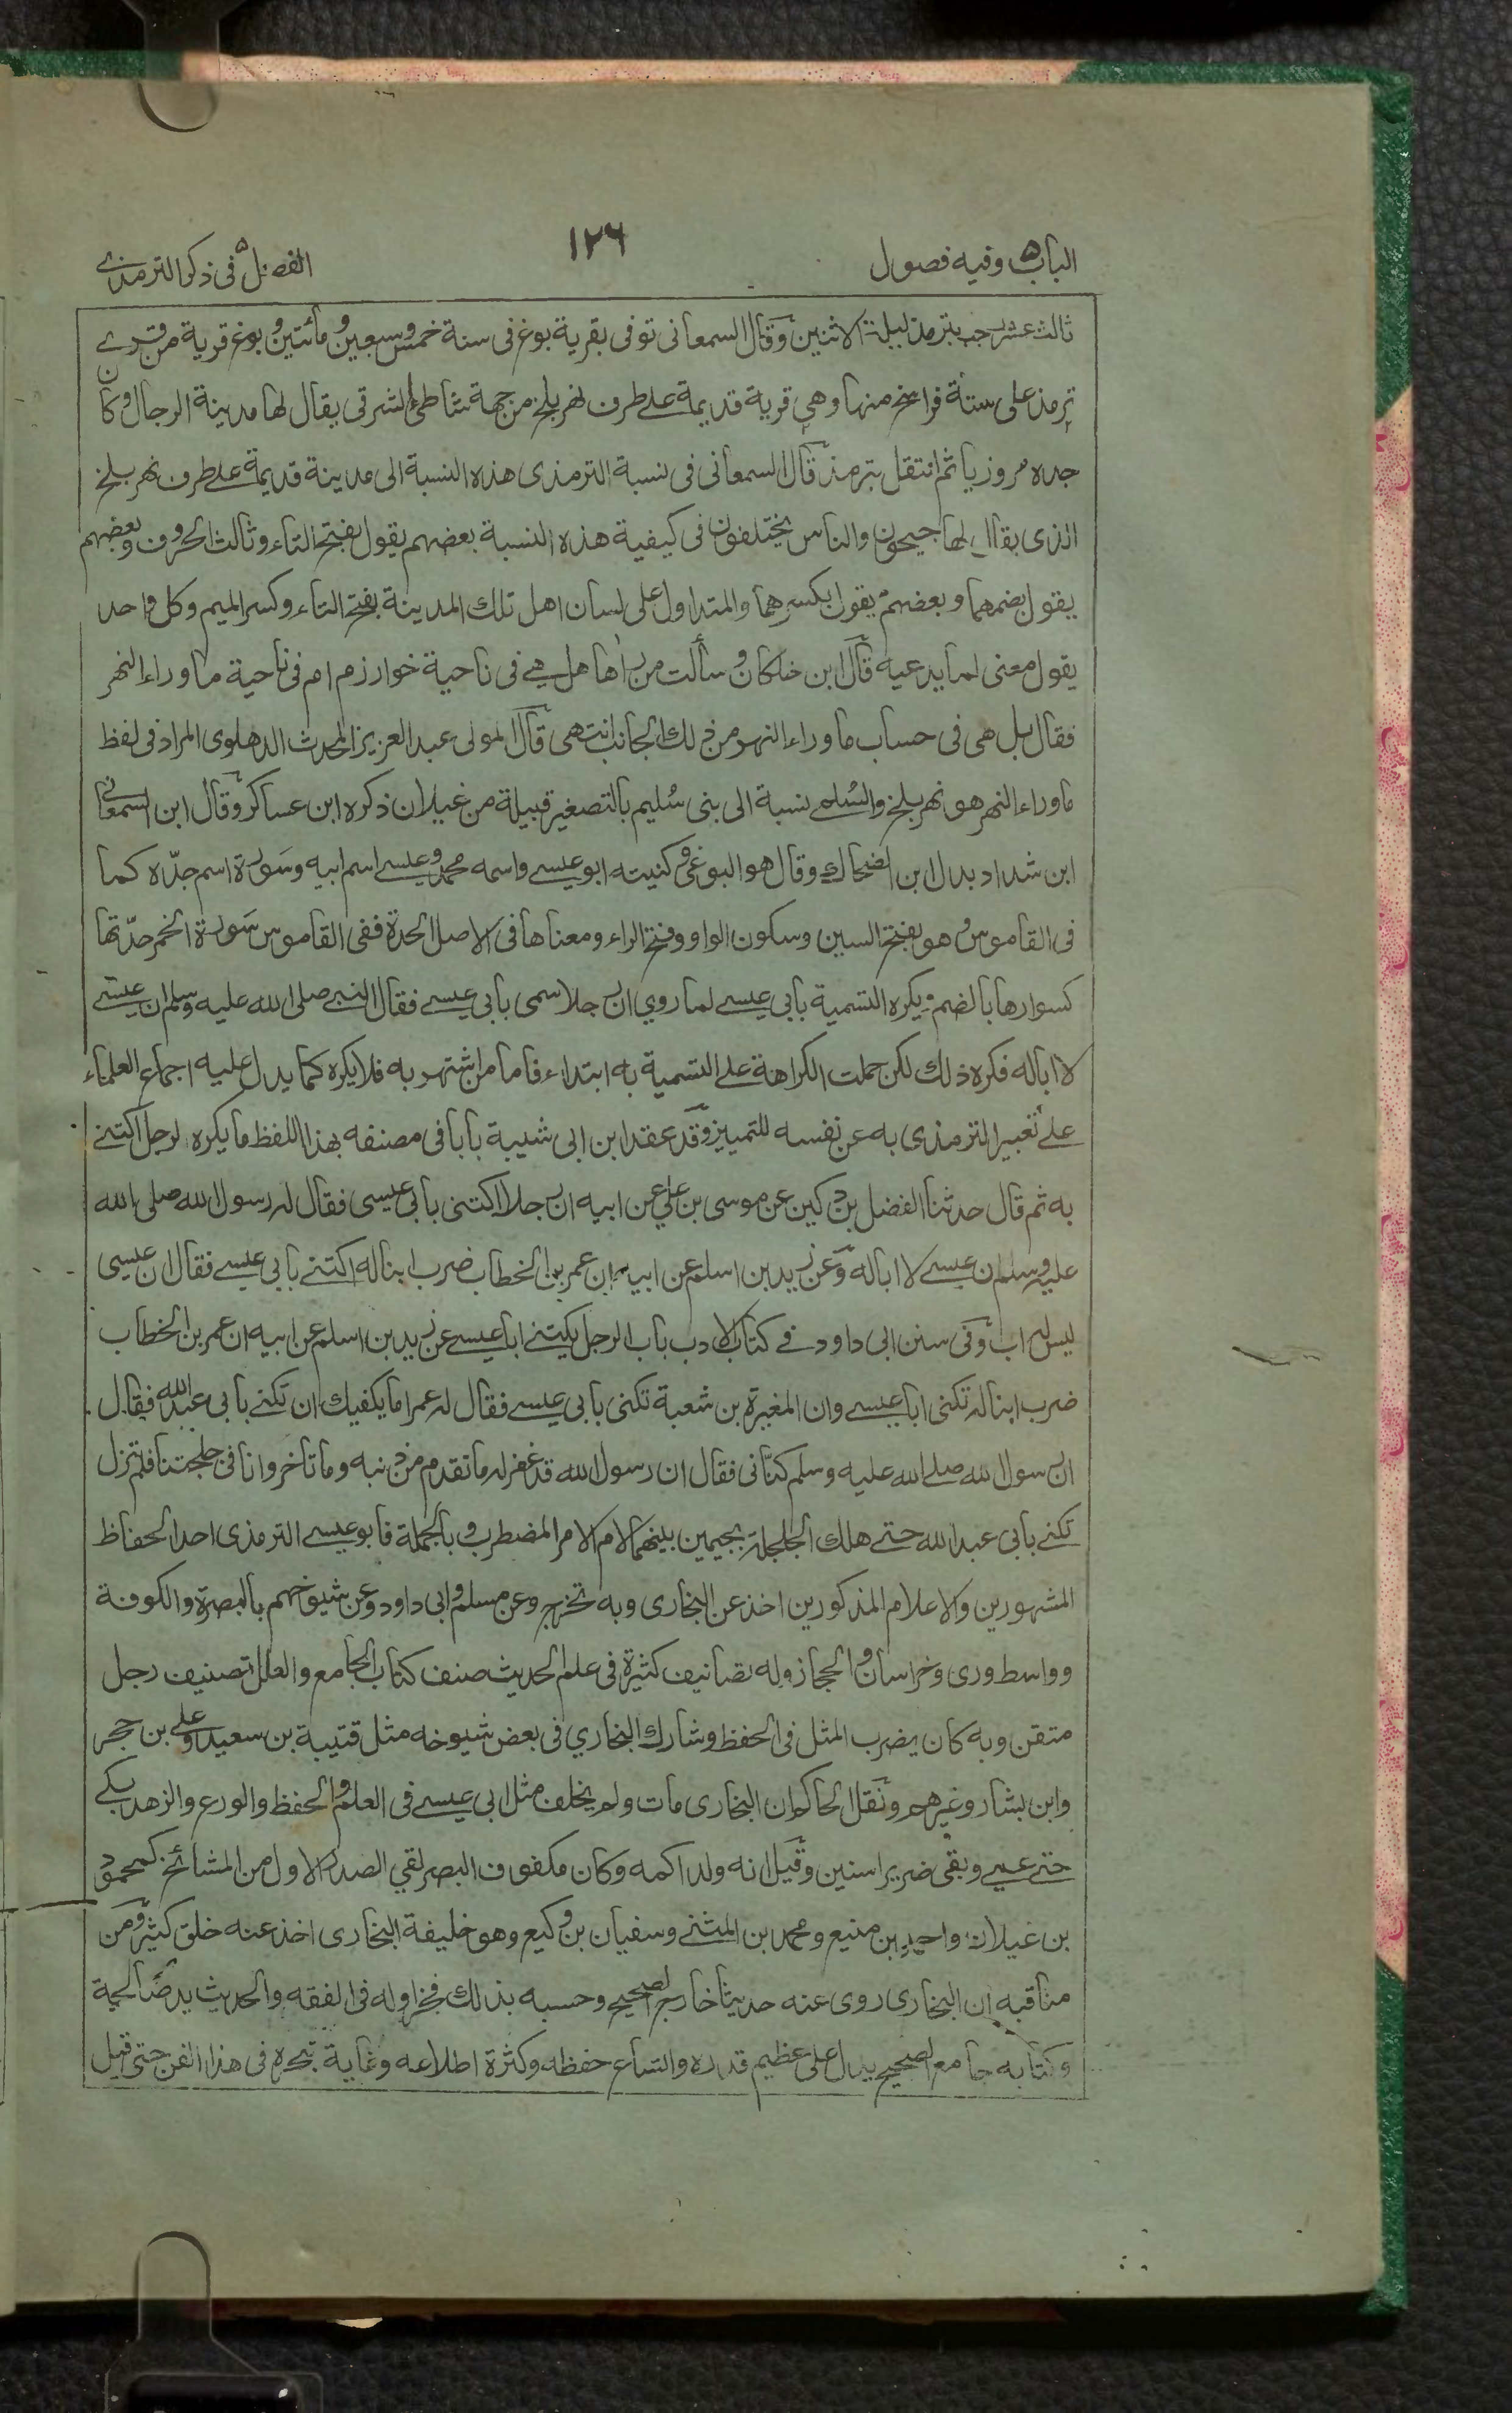 الباب ٥ وفيه فصول
١٢٦
الفصل ٥ فى ذكر الترمذى
ثالث عشر رجب بترمذ ليلة الاثنين وقال السمعانى توفى بقرية بوغ فى سنة خمس وسبعين ومائتين وبوغ قرية من قرى
ترمذ على ستة فراسخ منها وهى قرية قديمة على طرف نهر بلخ من جهة شاطئ الشرقى يقال لها مدينة الرجال وكان
جده مروزيا ثم انتقل بترمذ قال السمعانى فى نسبة الترمذى هذه النسبة الى مدينة قديمة على طرف نهر بلخ
الذى يقال لها جيحون والناس يختلفون فى كيفية هذه النسبة بعضهم يقول بفتح التاء وثالث الحروف وبعضهم
يقول بضمهما وبعضهم يقول بكسرهما والمتداول على لسان اهل تلك المدينة بفتح التاء وكسر الميم وكل واحد
يقول معنى لما يدعيه قال ابن خلكان وسألت من رأها هل هى فى ناحية خوارزم ام فى ناحية ما وراء النهر
فقال بل هى فى حساب ما وراء النهر من ذلك الجانب انتهى قال المولى عبد العزيز المحدث الدهلوى المراد فى لفظ
ما وراء النهر هو نهر بلخ والسلمى نسبة الى بنى سُليم بالتصغير قبيلة من غيلان ذكره ابن عساكر وقال ابن السمعانى
ابن شداد بدل ابن الضحاك وقال هو البوغى وكنيته ابو عيسى واسمه محمد وعيسى اسم ابيه وسَورة اسم جدّه كما
فى القاموس وهو بفتح السين وسكون الواو وفتح الراء ومعناها فى الاصل الحدة ففى القاموس سَورة الخمر حدّتها
كسوارها بالضم ويكره التسمية بابى عيسى لما روي ان رجلا سمى بابى عيسى فقال النبى صلى الله عليه وسلم ان عيسى
لا ابا له فكره ذلك لكن حملت الكراهة على التسمية به ابتداء فاما من اشتهر به فلا يكره كما يدل عليه اجماع العلماء
على تعبير الترمذى به عن نفسه للتمييز وقد عقد ابن ابى شيبة بابا فى مصنفه بهذا اللفظ ما يكره لرجل اكتنى
به ثم قال حدثنا الفضل بن دكين عن موسى بن علي عن ابيه ان رجلا اكتنى بابى عيسى فقال له رسول الله صلى الله
عليه وسلم ان عيسى لا ابا له وعن زيد بن اسلم عن ابيه ان عمر بن الخطاب ضرب ابنا له اكتنى بابى عيسى فقال ان عيسى
ليس له اب وفى سنن ابى داود فى كتاب الادب باب الرجل يكتنى ابا عيسى عن زيد بن اسلم عن ابيه ان عمر بن الخطاب
ضرب ابنا له تكنى ابا عيسى وان المغيرة بن شعبة تكنى بابى عيسى فقال له عمر اما يكفيك ان تكنى بابى عبد الله فقال
ان رسول الله صلى الله عليه وسلم كنّانى فقال ان رسول الله قد غفر له ما تقدم من ذنبه وما تأخر وانا فى جلجتنا فلم تزل
تكنى بابى عبد الله حتى هلك الجلجلة بجيمين بينهما لام الامر المضطرب وبالجملة فابو عيسى الترمذى احد الحفاظ
المشهورين والاعلام المذكورين اخذ عن البخارى وبه تخرج وعن مسلم وابى داود وعن شيوخهم بالبصرة والكوفة
وواسط ورى وخراسان والحجاز وله تصانيف كثيرة فى علم الحديث صنف كتاب الجامع والعلل تصنيف رجل
متقن وبه كان يضرب المثل فى الحفظ وشارك البخاري فى بعض شيوخه مثل قتيبة بن سعيد وعلى بن حجر
وابن بشار وغيرهم ونقل الحاكم ان البخارى مات ولم يخلف مثل ابى عيسى فى العلم والحفظ والورع والزهد بكى
حتى عمى وبقى ضريرا سنين وقيل انه ولد اكمه وكان مكفوف البصر لقي الصدر الاول من المشائخ كمحمود
بن غيلان واحمد بن منيع ومحمد بن المثنى وسفيان بن وكيع وهو خليفة البخارى اخذ عنه خلق كثير ومن
مناقبه ان البخارى روى عنه حديثا خارج الصحيح وحسبه بذلك فخرا وله فى الفقه والحديث يد صالحة
وكتابه جامع الصحيح يدل على عظيم قدره واتساع حفظه وكثرة اطلاعه وغاية تبحره فى هذا الفن حتى قيل